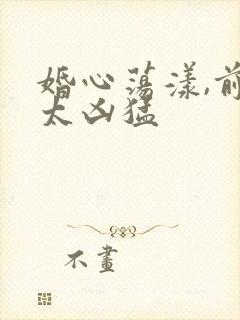 婚心荡漾,前
太凶猛
不畫